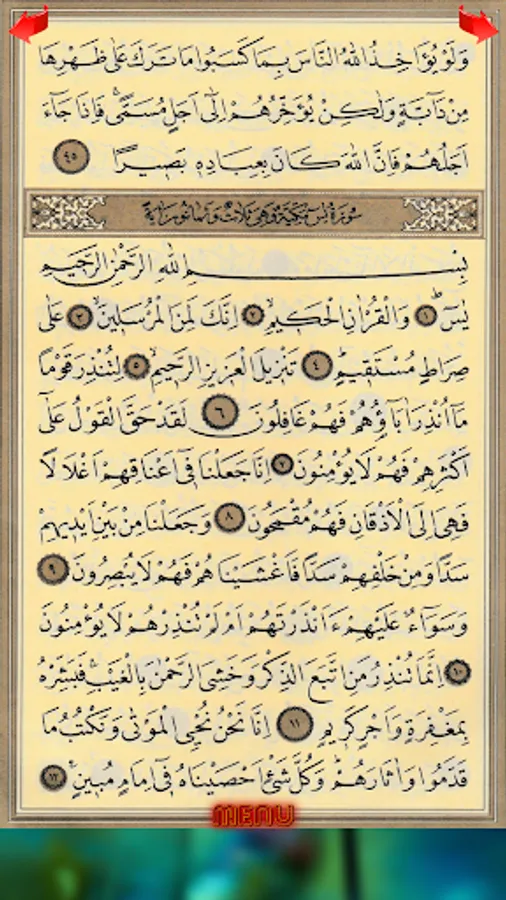 وَلَوْ يُؤَاخِذُ اللّٰهُ النَّاسَ بِمَا كَسَبُوا مَا تَرَكَ عَلٰى ظَهْرِهَا
مِنْ دَٓابَّةٍ وَلٰكِنْ يُؤَخِّرُهُمْ اِلٰٓى اَجَلٍ مُسَمًّىۚ فَاِذَا جَٓاءَ
اَجَلُهُمْ فَاِنَّ اللّٰهَ كَانَ بِعِبَادِه۪ بَص۪يرًا ﴿٤٥﴾
سُورَةُ يٰسٓ مَكِّيَّةٌ وَهِيَ ثَلَاثٌ وَثَمَانُونَ اٰيَةً
بِسْمِ اللّٰهِ الرَّحْمٰنِ الرَّح۪يمِ
يٰسٓۜ ﴿١﴾ وَالْقُرْاٰنِ الْحَك۪يمِۙ ﴿٢﴾ اِنَّكَ لَمِنَ الْمُرْسَل۪ينَۙ ﴿٣﴾ عَلٰى
صِرَاطٍ مُسْتَق۪يمٍۜ ﴿٤﴾ تَنْز۪يلَ الْعَز۪يزِ الرَّح۪يمِۙ ﴿٥﴾ لِتُنْذِرَ قَوْمًا
مَٓا اُنْذِرَ اٰبَٓاؤُ۬هُمْ فَهُمْ غَافِلُونَ ﴿٦﴾ لَقَدْ حَقَّ الْقَوْلُ عَلٰٓى
اَكْثَرِهِمْ فَهُمْ لَا يُؤْمِنُونَ ﴿٧﴾ اِنَّا جَعَلْنَا ف۪ٓي اَعْنَاقِهِمْ اَغْلَالًا
فَهِيَ اِلَى الْاَذْقَانِ فَهُمْ مُقْمَحُونَ ﴿٨﴾ وَجَعَلْنَا مِنْ بَيْنِ اَيْد۪يهِمْ
سَدًّا وَمِنْ خَلْفِهِمْ سَدًّا فَاَغْشَيْنَاهُمْ فَهُمْ لَا يُبْصِرُونَ ﴿٩﴾
وَسَوَٓاءٌ عَلَيْهِمْ ءَاَنْذَرْتَهُمْ اَمْ لَمْ تُنْذِرْهُمْ لَا يُؤْمِنُونَ
﴿١٠﴾ اِنَّمَا تُنْذِرُ مَنِ اتَّبَعَ الذِّكْرَ وَخَشِيَ الرَّحْمٰنَ بِالْغَيْبِۚ فَبَشِّرْهُ
بِمَغْفِرَةٍ وَاَجْرٍ كَر۪يمٍ ﴿١١﴾ اِنَّا نَحْنُ نُحْيِ الْمَوْتٰى وَنَكْتُبُ مَا
قَدَّمُوا وَاٰثَارَهُمْۜ وَكُلَّ شَيْءٍ اَحْصَيْنَاهُ ف۪ٓي اِمَامٍ مُب۪ينٍ۟ ﴿١٢﴾
MENU